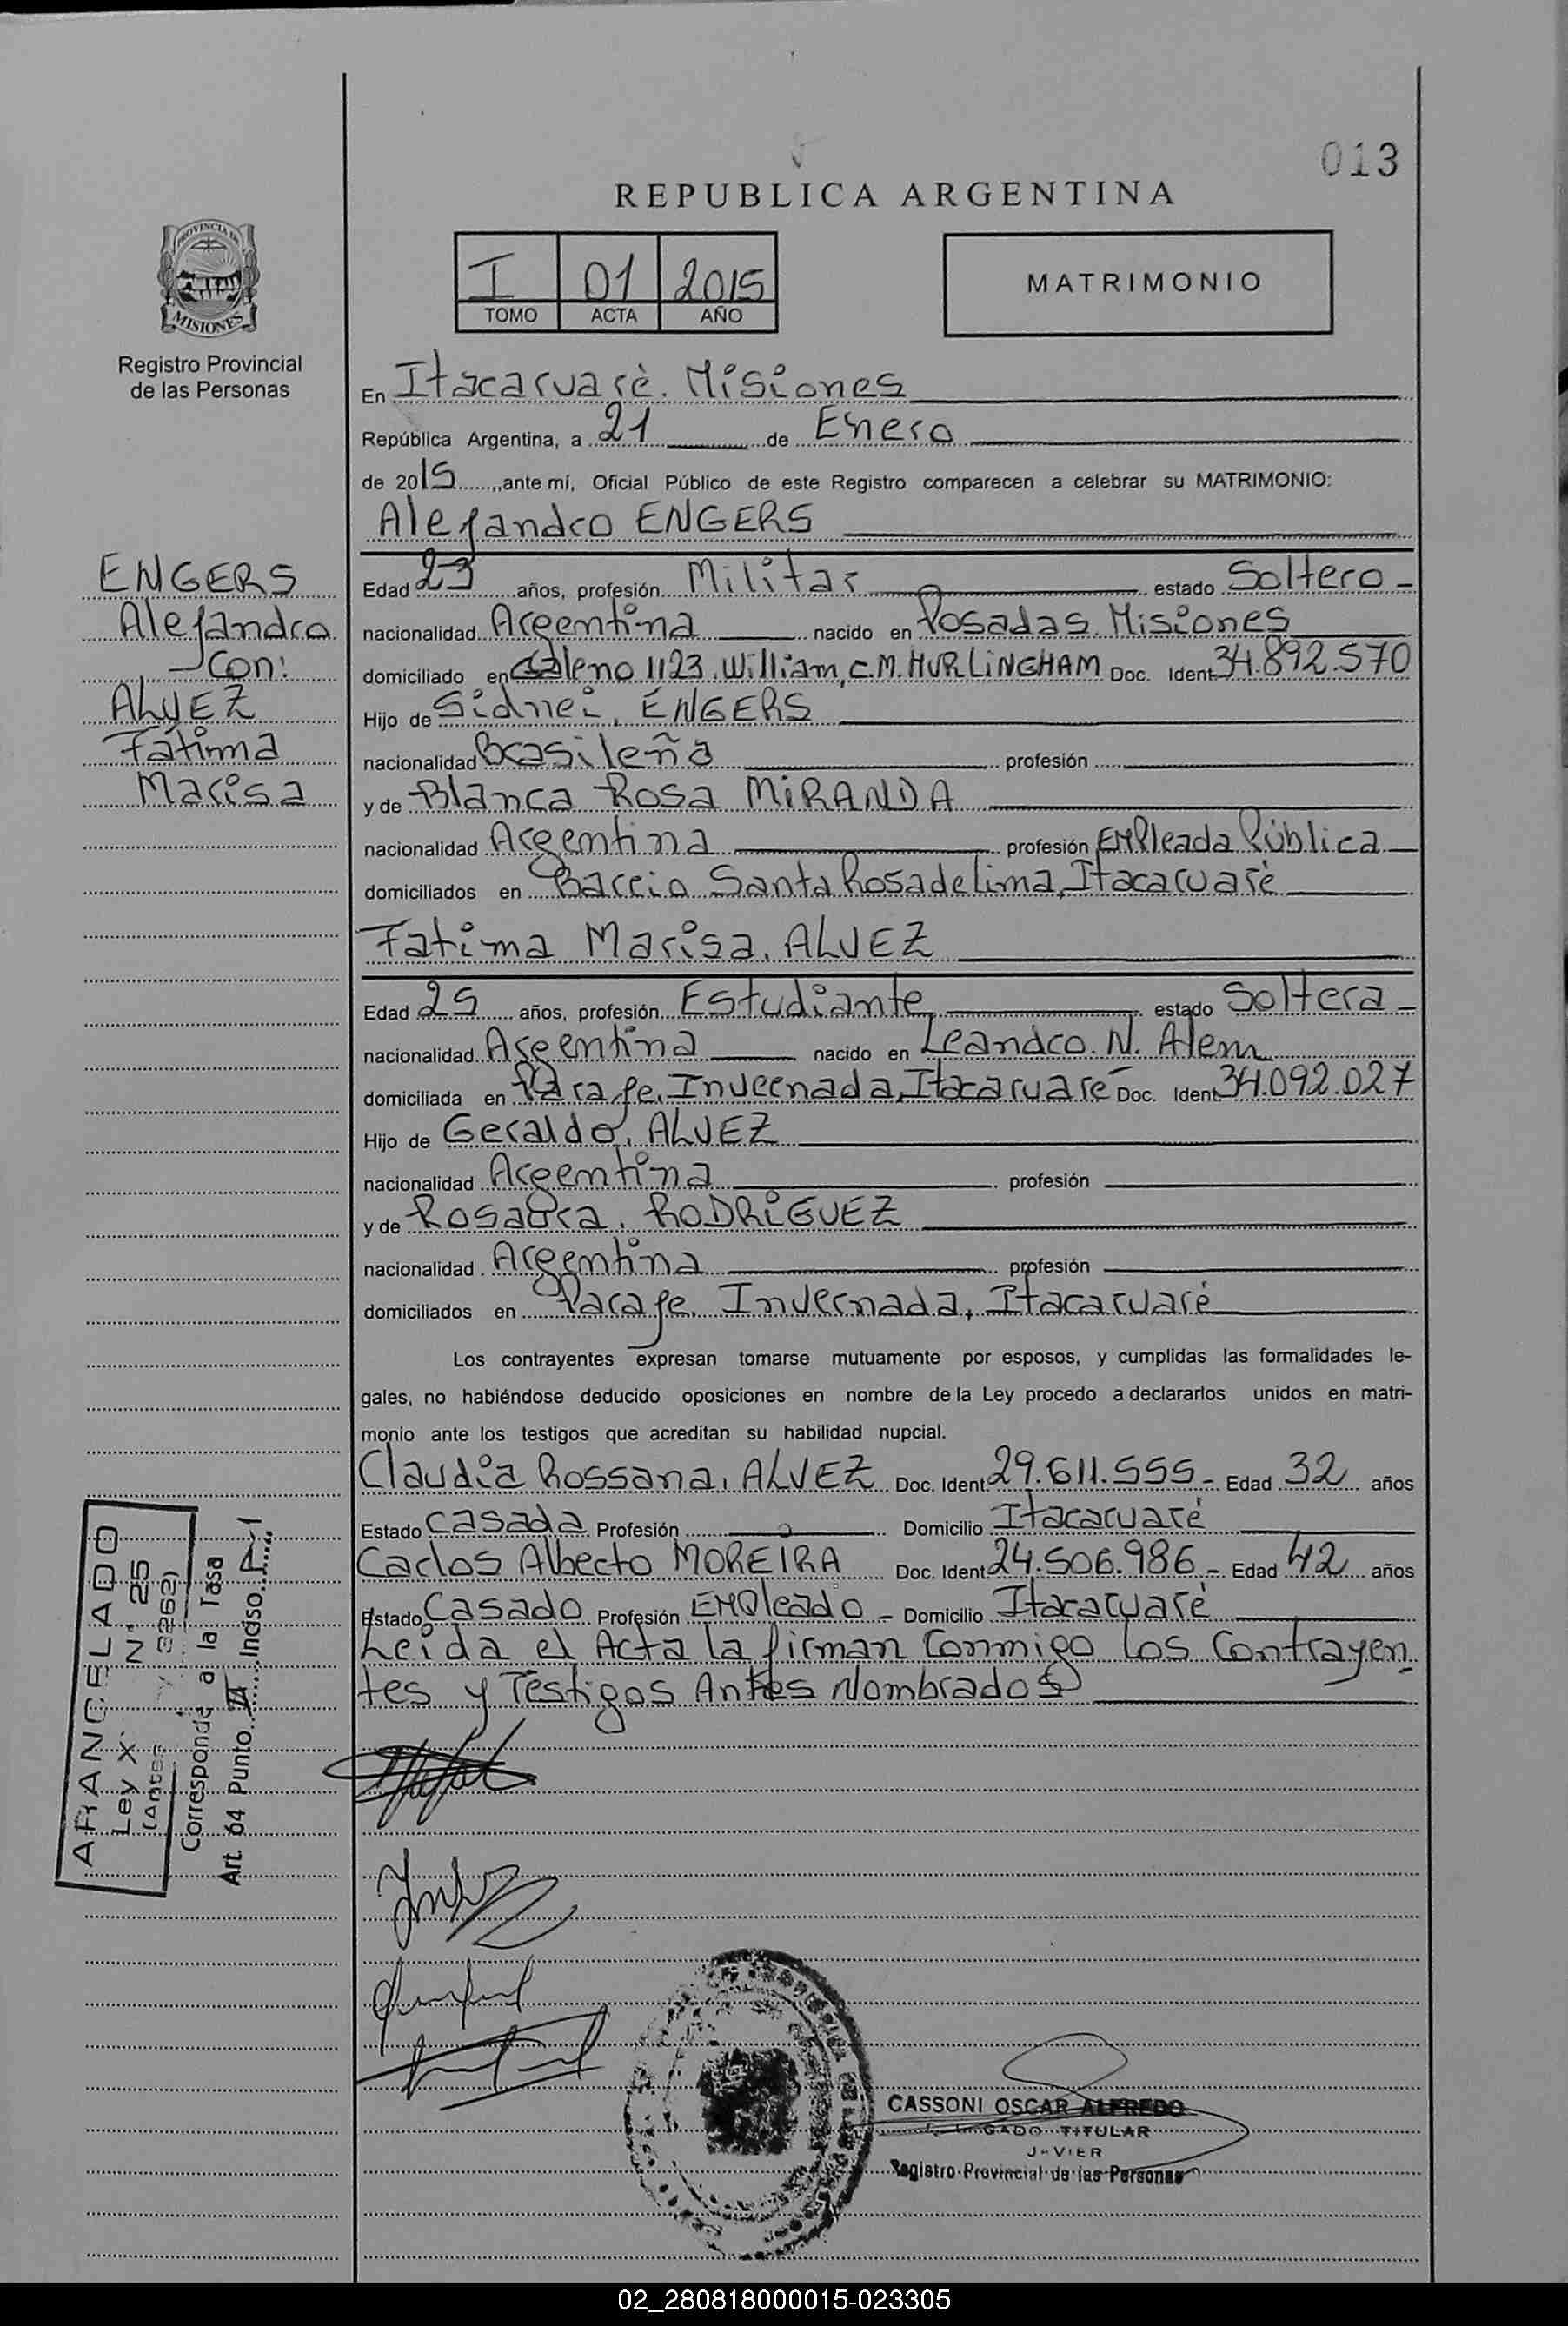 013
REPUBLICA ARGENTINA
I 01 2015
TOMO ACTA AÑO
MATRIMONIO
PROVINCIA DE
MISIONES
Registro Provincial
de las Personas
En Itacaruarè. Misiones
República Argentina, a 21 de Enero
de 2015 ante mí, Oficial Público de este Registro comparecen a celebrar su MATRIMONIO:
Alejandro ENGERS
ENGERS
Alejandro
Con:
ALVEZ
Fátima
Marisa
Edad 23 años, profesión Militar estado Soltero
nacionalidad Argentina nacido en Posadas. Misiones
domiciliado en Galeno 1123. William, C.M. HURLINGHAM Doc. Ident 34.892.570
Hijo de Sidnei. ENGERS
nacionalidad Brasileña profesión
y de Blanca Rosa MIRANDA
nacionalidad Argentina profesión EMPleada Pública
domiciliados en Barrio Santa Rosa de Lima, Itacaruaré
Fatima Marisa. ALVEZ
Edad 25 años, profesión Estudiante estado Soltera
nacionalidad Argentina nacido en Leandro. N. Alem
domiciliada en Paraje. Invernada, Itacaruaré Doc. Ident 34.092.027
Hijo de Geraldo. ALVEZ
nacionalidad Argentina profesión
y de Rosaura. RODRIGUEZ
nacionalidad Argentina profesión
domiciliados en Paraje. Invernada, Itacaruaré
Los contrayentes expresan tomarse mutuamente por esposos, y cumplidas las formalidades le-
gales, no habiéndose deducido oposiciones en nombre de la Ley procedo a declararlos unidos en matri-
monio ante los testigos que acreditan su habilidad nupcial.
Claudia Rossana. ALVEZ Doc. Ident 29.611.555 - Edad 32 años
Estado Casada Profesión Domicilio Itacaruaré
Carlos Alberto MOREIRA Doc. Ident 24.506.986 - Edad 42 años
Estado Casado Profesión EMPleado - Domicilio Itacaruaré
Leida el Acta la firman Conmigo los Contrayen
tes y Testigos Antes Nombrados
ARANCELADO
Ley X N° 25
(Antes 3262)
Corresponde a la Tasa
Art. 64 Punto III Inciso
CASSONI OSCAR ALFREDO
TITULAR
Registro Provincial de las Personas
02_280818000015-023305